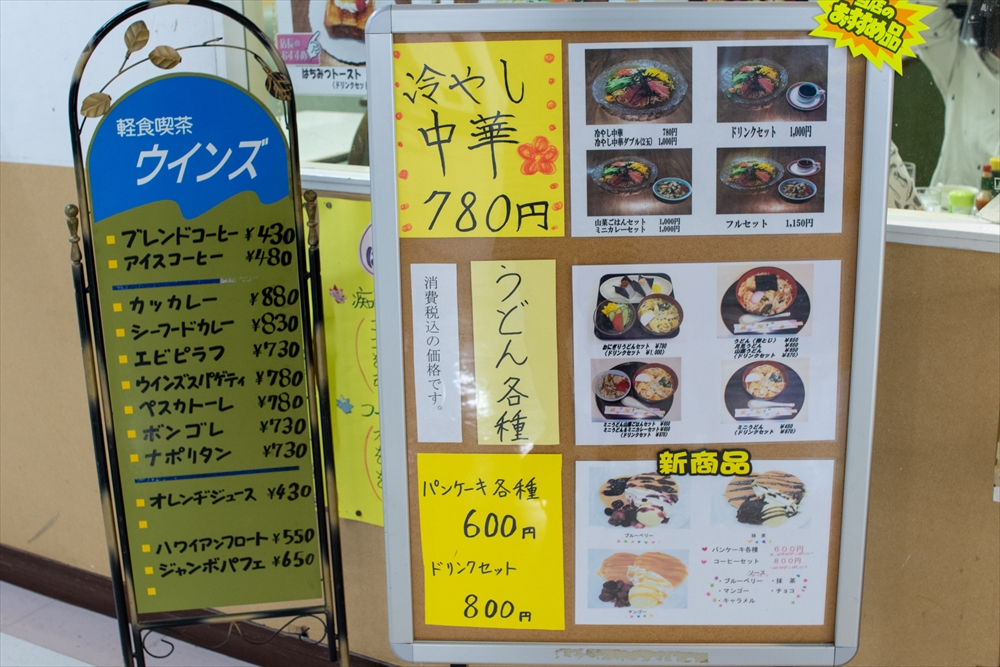 軽食喫茶
ウインズ
ブレンドコーヒー ¥430
アイスコーヒー ¥480
カッカレー ¥880
シーフードカレー ¥830
エビピラフ ¥730
ウインズスパゲティ ¥780
ペスカトーレ ¥780
ボンゴレ ¥730
ナポリタン ¥730
オレンヂジュース ¥430
アイス
ハワイアンフロート ¥550
ジャンボパフェ ¥650
店長の
おすすめ
はちみつトースト
(ドリンクセット
当店の
おすすめ品
冷やし
中華
780円
冷やし中華 780円
冷やし中華ダブル(2玉) 1,000円
ドリンクセット 1,000円
山菜ごはんセット 1,000円
ミニカレーセット 1,000円
フルセット 1,150円
消費税込の価格です。
うどん各種
おにぎりうどんセット ¥780
(ドリンクセット ¥1,000)
ミニうどん ¥450
(ドリンクセット ¥670)
パンケーキ各種
600円
ドリンクセット
800円
新商品
ブルーベリー
抹茶
マンゴー
パンケーキ各種 600円
コーヒーセット 800円
ソース
・ブルーベリー ・抹茶
・マンゴー ・チョコ
・キャラメル